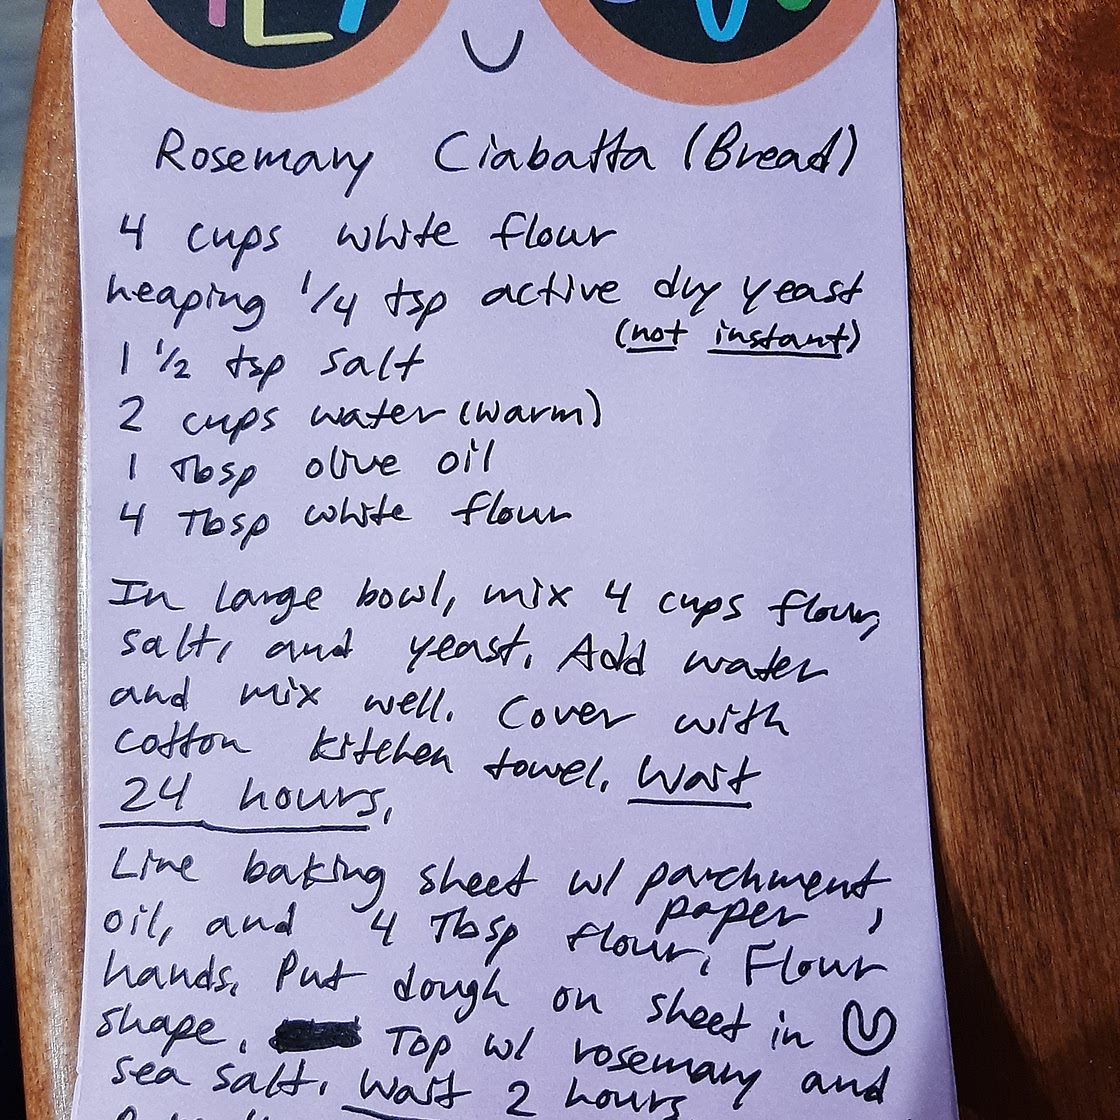 Rosemary Ciabatta (Bread)
4 cups white flour
heaping 1/4 tsp active dry yeast
(not instant)
1 1/2 tsp salt
2 cups water (warm)
1 Tbsp olive oil
4 Tbsp white flour
In large bowl, mix 4 cups flour,
salt, and yeast. Add water
and mix well. Cover with
cotton kitchen towel. Wait
24 hours.
Line baking sheet w/ parchment
paper,
oil, and 4 Tbsp flour. Flour
hands. Put dough on sheet in
shape. Top w/ rosemary and
sea salt. Wait 2 hours